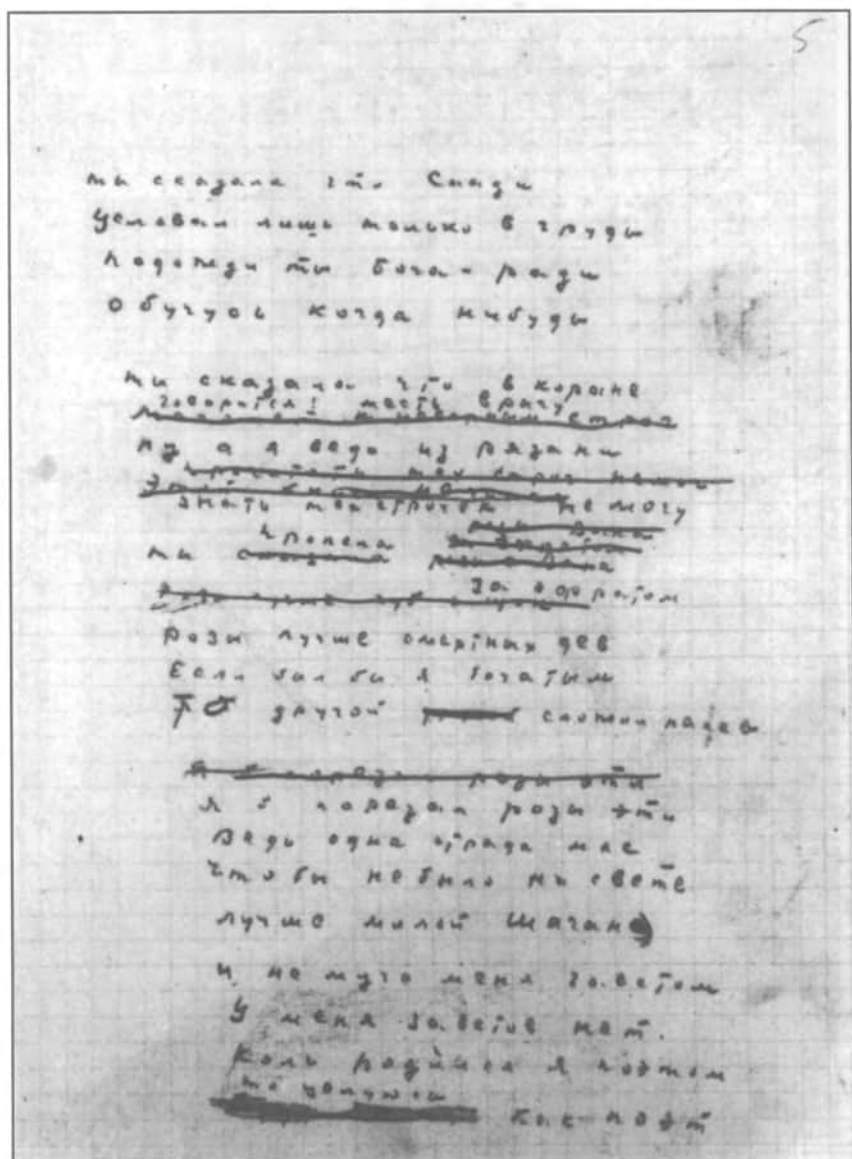 5
ты сказала что Саади
Целовал лишь только в грудь
Подожди ты бога-ради
Обучусь когда нибудь
ты сказала что в коране
говорится: месть врагу
ну а я ведь из рязани
знать тех строчек не могу
ты пропела
за ефратом
розы лучше смертных дев
Если был бы я богатым
То другой сложил напев
Я б порезал розы эти
Ведь одна отрада мне
Чтобы не было на свете
лучше милой Шаганэ
и не мучь меня заветом
У меня заветов нет.
Коль родился я поэтом
то целуюсь
как поэт